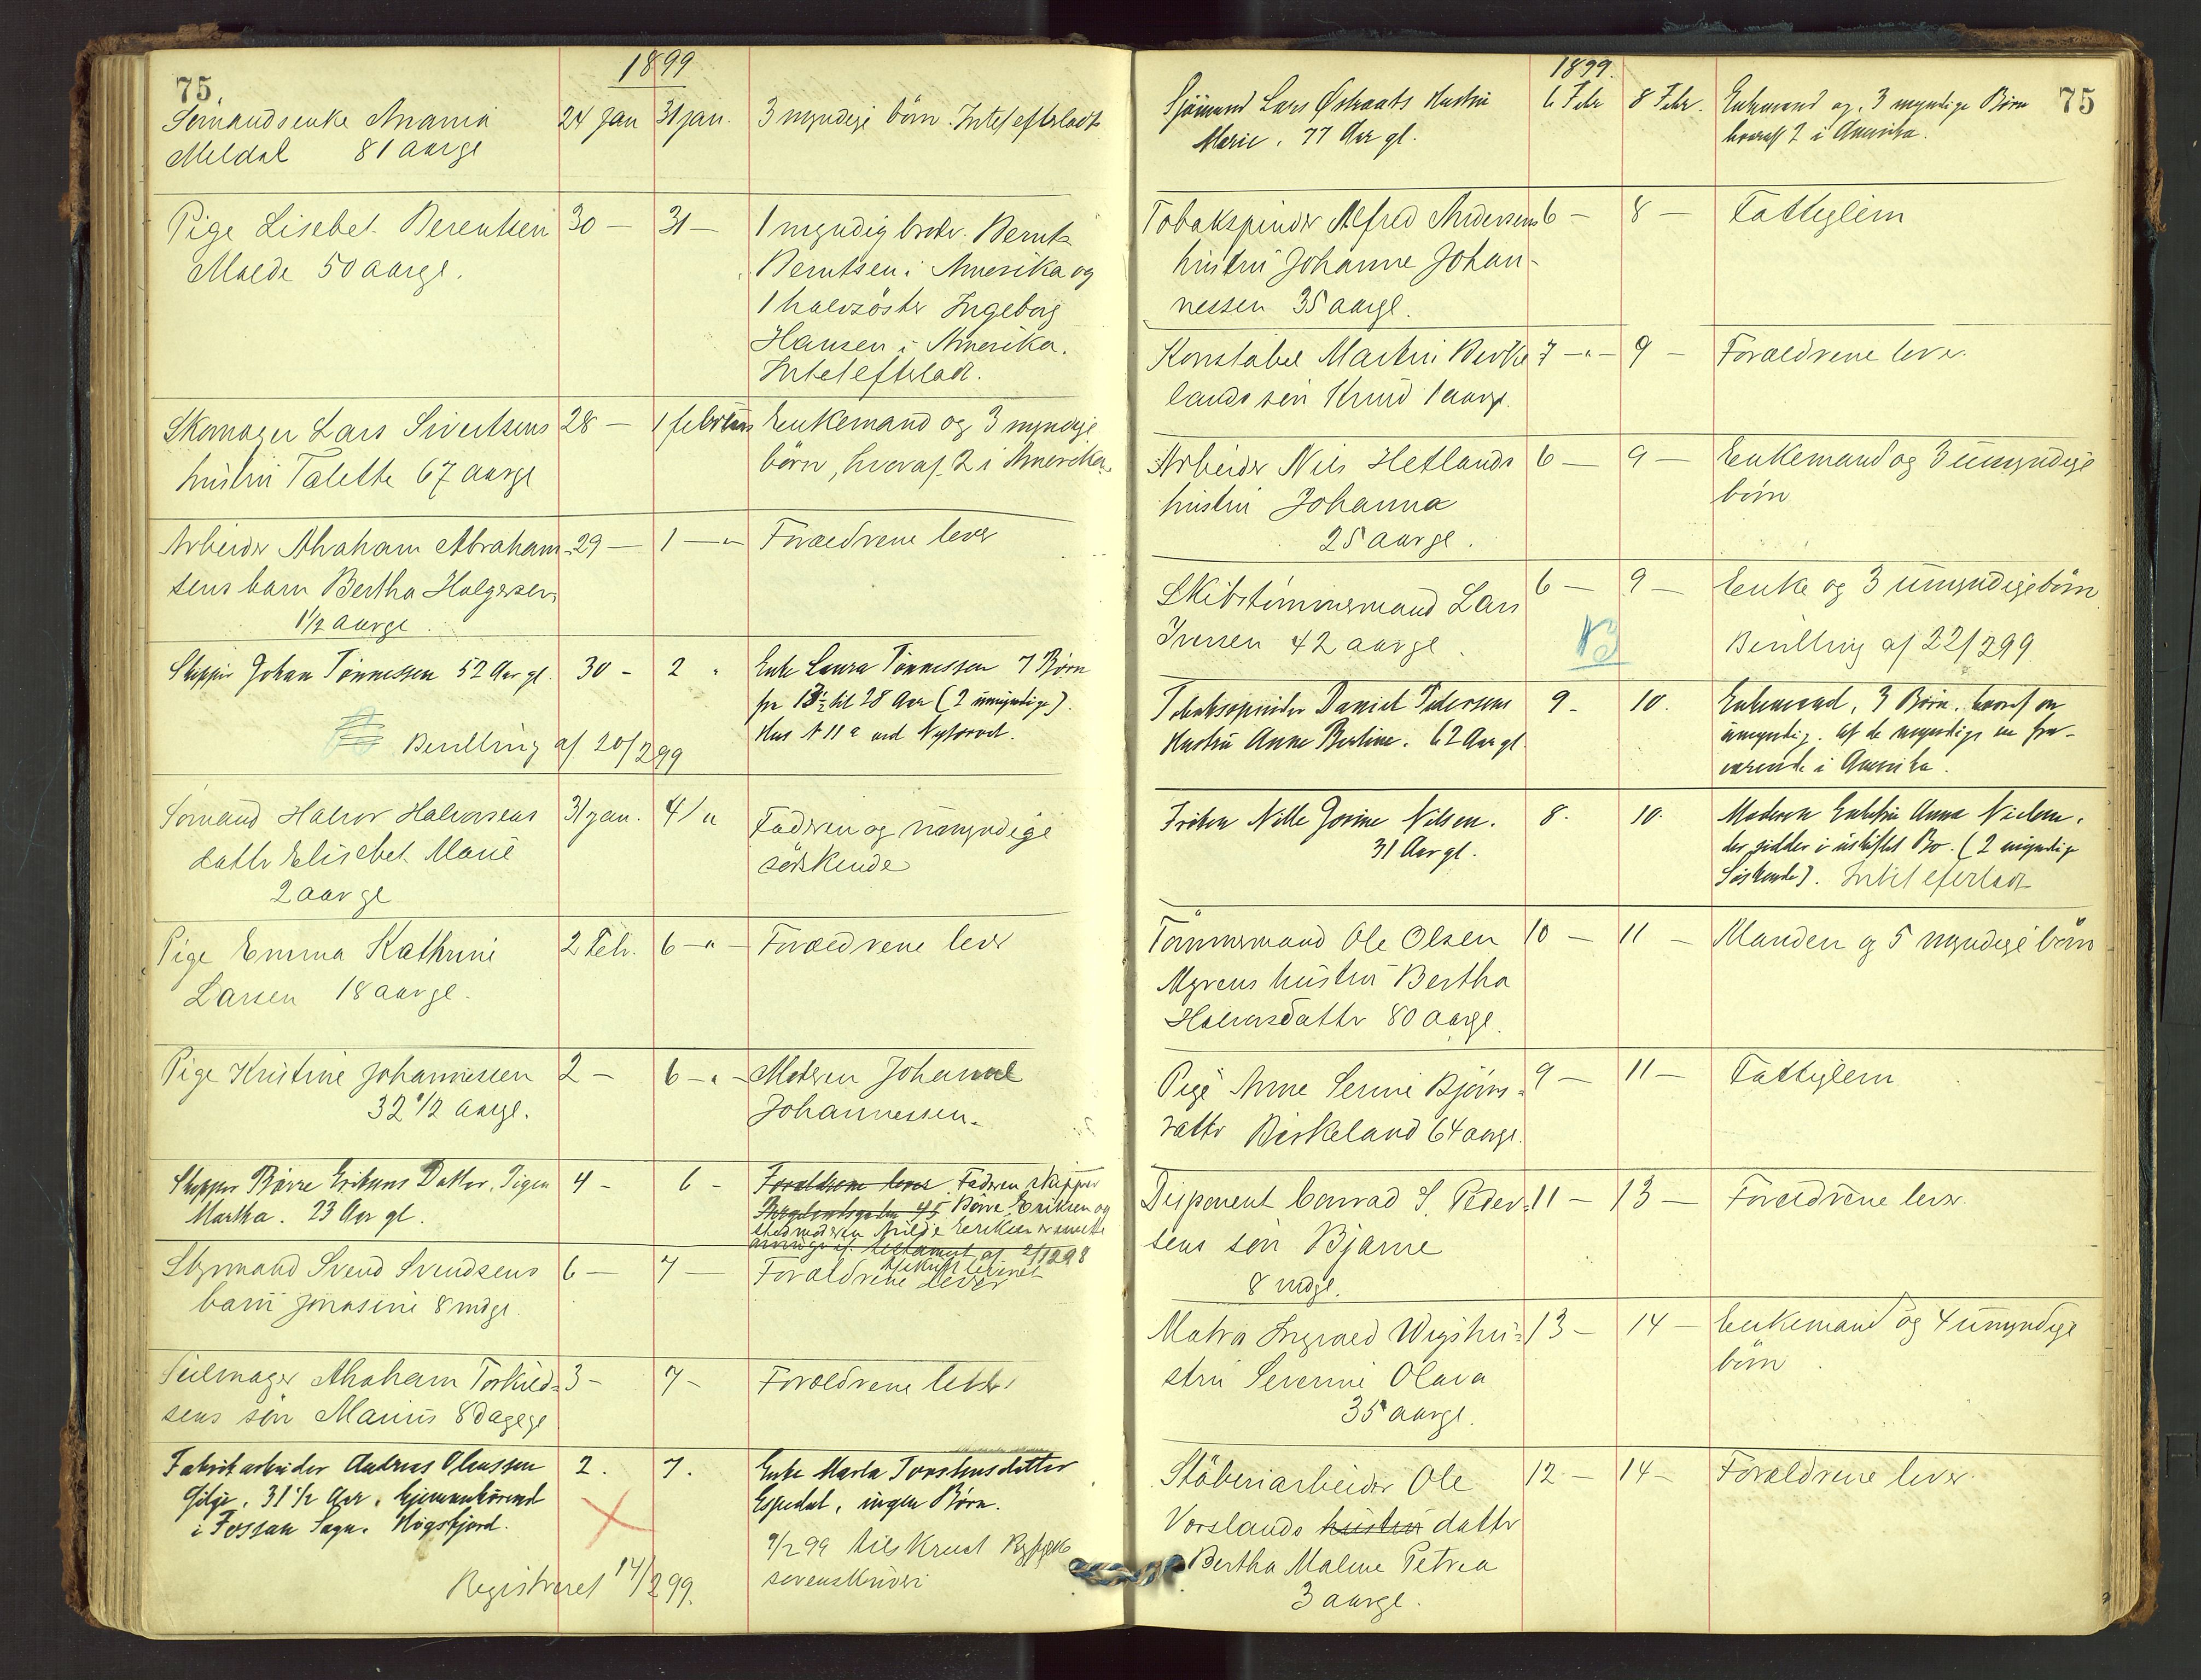 75
1899
Sömandsenke Anania 24 jan 31 jan. 3 myndige börn. Intet efterladt
Meldal 81 aargl
Pige Lisebet Berentsen 30 — 31 — 1 myndig broder Bernt
Malde 50 aargl. Berntsen i Amerika og
1 halvsöster Ingeborg
Hansen i Amerika.
Intet efterladt.
Skomager Lars Sivertsens 28 — 1 februar Enkemand og 3 myndige
hustru Talette 67 aargl börn, hvoraf 2 i Amerika.
Arbeider Abraham Abraham- 29 — 1 —"— Forældrene lever
sens barn Bertha Holgersen
1 1/2 aargl.
Skipper Johan Tönnessen 52 Aar gl. 30 - 2 " Enke Laura Tönnessen 7 Börn
fra 13 1/2 til 28 Aar (2 umyndige).
Hus N 11 a ved Nytorvet.
Bevilling af 20/2 99
Sömand Halvor Halvorsens 31 jan. 4 / " Faderen og umyndige
datter Elisebet Marie söskende
2 aargl
Pige Emma Kathrine 2 Feb. 6 —"— Forældrene lever
Larsen 18 aargl.
Pige Kristine Johannessen 2 — 6 —"— Moderen Johanne
32 1/2 aargl. Johannessen.
Skipper Börre Eriksens Datter, Pigen 4 - 6 - Forældrene lever. Faderen skipper
Martha. 23 Aar gl. Börre Eriksen og
stedmoderen Eriksen er
testament af 2/12 98
Styrmand Svend Svendsens 6 — 7 — Forældrene lever
barn Jonasine 8 mdgl.
Seilmager Abraham Torkild- 3 - 7 - Forældrene lever
sens sön Marius 8 dagegl
Fabrikarbeider Andreas Olaussen 2. 7. Enke Marta Torstensdatter
Gilje, 31 1/2 Aar, hjemmehörende Espedal, ingen Börn.
i Fossan Sogn. Högsfjord.
9/2 99 tilskrevet Ryfylke
sorenskriveri
Registreret 14/2 99.
75
1899.
Sjömand Lars Østraats Hustru 6 Febr 8 Febr. Enkemand og 3 myndige Börn
Marie, 77 Aar gl. hvoraf 2 i Amerika.
Tobakspinder Alfred Andersens 6 — 8 — Fattiglem
hustru Johanne Johan-
nessen 35 aargl.
Konstabel Martin Birke- 7 —"— 9 — Forældrene lever.
lands sön Knud 1 aargl.
Arbeider Nils Hetlands 6 — 9 — Enkemand og 3 umyndige
hustru Johanna börn
25 aargl.
Skibstömmermand Lars 6 — 9 — Enke og 3 umyndige börn
Iversen 42 aargl. NB Bevilling af 22/2 99
Tobakspinder Daniel Pedersens 9 - 10. Enkemand, 3 Börn, hvoraf en
Hustru Anne Bertine. 62 Aar gl. umyndig. Af de myndige en fra-
værende i Amerika.
Fröken Nille Gorine Nilsen. 8. 10. Moderen Enkefru Anna Nielsen,
31 Aar gl. der sidder i uskiftet Bo. (2 myndige
Söskende). Intet efterladt
Tömmermand Ole Olsen 10 — 11 — Manden og 5 myndige börn
Myrens hustru Bertha
Halvorsdatter 80 aargl.
Pige Anne Serine Björns- 9 — 11 — Fattiglem
datter Birkeland 64 aargl.
Disponent Conrad S. Peder- 11 — 13 — Forældrene lever.
sens sön Bjarne
8 mdgl.
Matros Ingvald Wigs hu- 13 — 14 — Enkemand og 4 umyndige
stru Severine Olava börn.
35 aargl.
Stöberiarbeider Ole 12 — 14 — Forældrene lever.
Vorslands hustru datter
Bertha Maline Petrea
3 aargl.